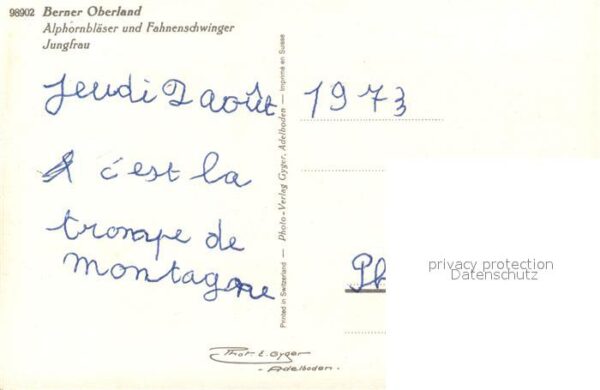 98902 Berner Oberland
Alphornbläser und Fahnenschwinger
Jungfrau
Jeudi 2 août 1973
c'est la
trompe de
montagne
Printed in Switzerland — Photo-Verlag Gyger, Adelboden — Imprimé en Suisse
privacy protection
Datenschutz
Phot. E. Gyger
- Adelboden. -